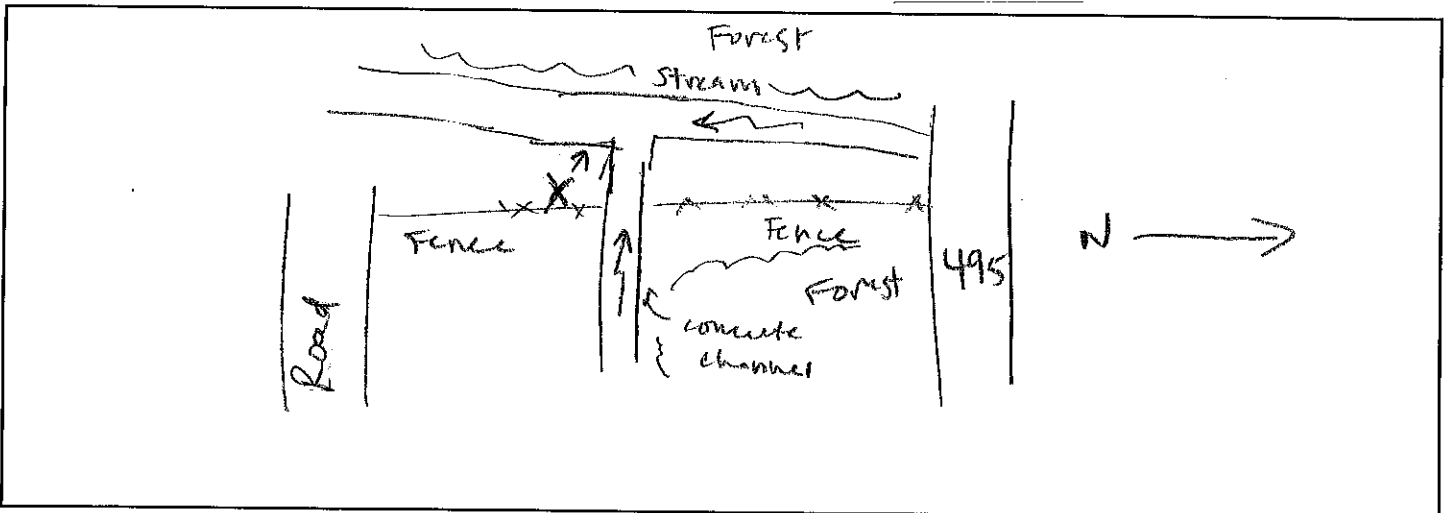 Forest
Stream
X
Fence
Fence
Forest
495
N
Road
concrete
channel